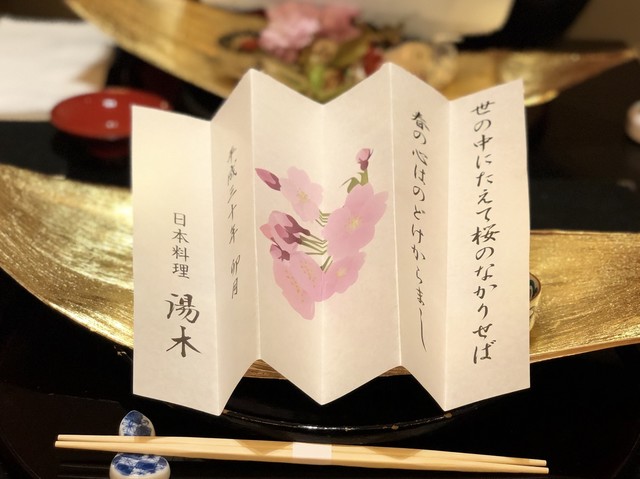 世の中にたえて桜のなかりせば
春の心はのどけからまし
平成三十年 卯月
日本料理 湯木